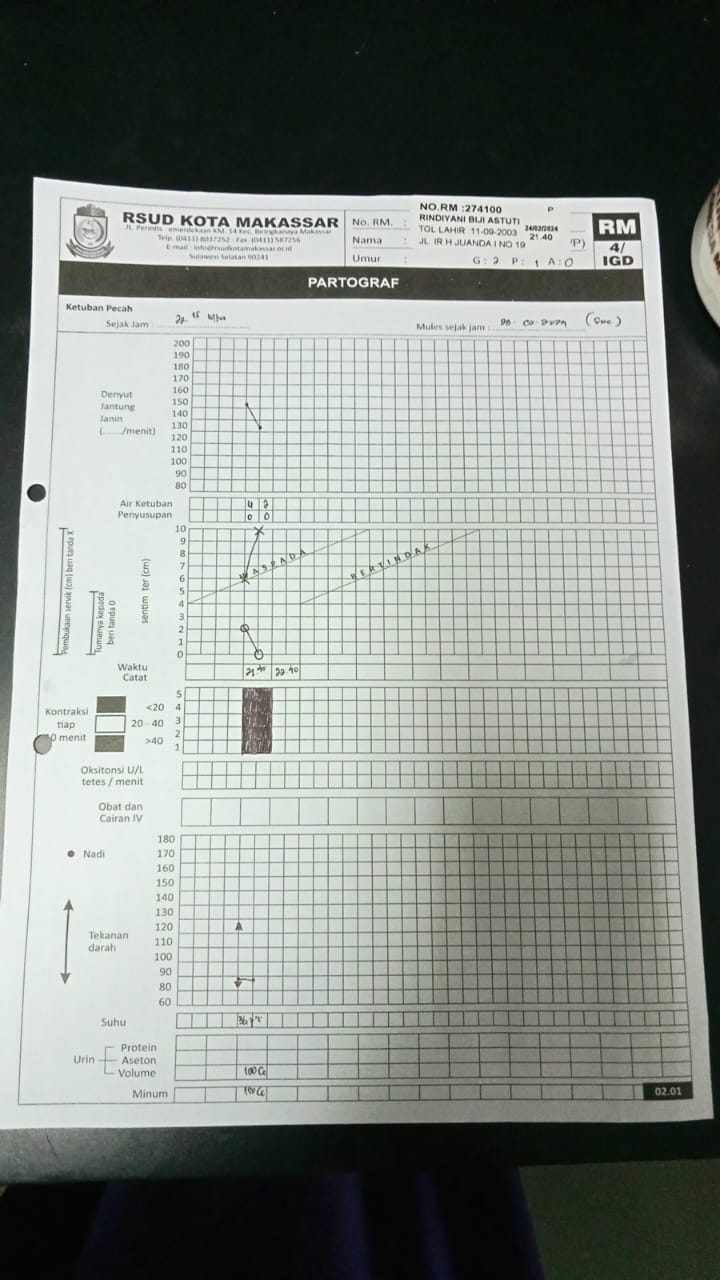 RSUD KOTA MAKASSAR
JL. Perintis emerdekaan KM. 14 Kec. Biringkanaya Makassar
Telp. (0411) 8037252 - Fax. (0411) 587256
E-mail : info@rsudkotamakassar.or.id
Sulawesi Selatan 90241
No. RM. :
Nama :
Umur :
NO.RM :274100 P
RINDIYANI BIJI ASTUTI
TGL LAHIR 11-09-2003 24/02/2024
21.40
JL. IR H JUANDA I NO 19 'P)
G : 2 P : 1 A : 0
RM
4/
IGD
PARTOGRAF
Ketuban Pecah
Sejak Jam :
Mules sejak jam :
200
190
180
170
160
150
140
130
120
110
100
90
80
Denyut
Jantung
Janin
(......./menit)
Air Ketuban
Penyusupan
0 0
Pembukaan servik (cm) beri tanda X
Tumanya kepada
beri tanda 0
sentim ter (cm)
10
9
8
7
6
5
4
3
2
1
0
WASPADA
BERTINDAK
Waktu
Catat
21.40 22.40
Kontraksi
tiap
0 menit
<20
20 - 40
>40
5
4
3
2
1
Oksitonsi U/L
tetes / menit
Obat dan
Cairan IV
Nadi
Tekanan
darah
180
170
160
150
140
130
120
110
100
90
80
60
Suhu
Urin
Protein
Aseton
Volume
100 cc
Minum
02.01